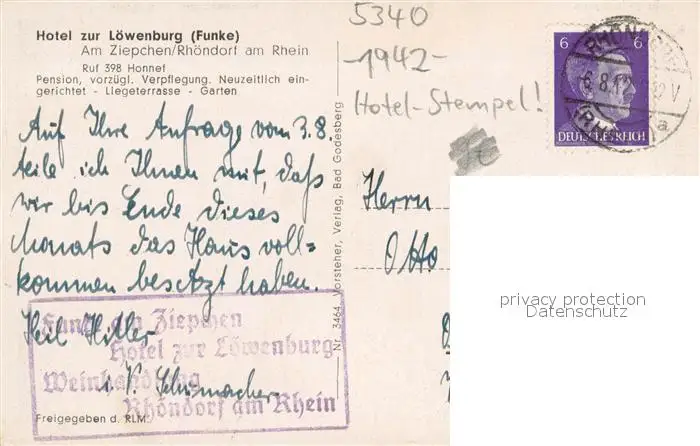 Hotel zur Löwenburg (Funke)
Am Ziepchen/Rhöndorf am Rhein
Ruf 398 Honnef
Pension, vorzügl. Verpflegung. Neuzeitlich ein-
gerichtet - Liegeterrasse - Garten
5340
-1942-
Hotel-Stempel!
6 6
DEUTSCHES REICH
Auf Ihre Anfrage vom 3.8.
teile ich Ihnen mit, daß
wir bis Ende dieses
Monats das Haus voll=
kommen besetzt haben.
Heil Hitler
i. V. Schumacher
Funke am Ziepchen
Hotel zur Löwenburg
Weinhandlung
Rhöndorf am Rhein
Freigegeben d. RLM.
Nr. 3464 Vorsteher, Verlag, Bad Godesberg
Herrn
Otto
privacy protection
Datenschutz